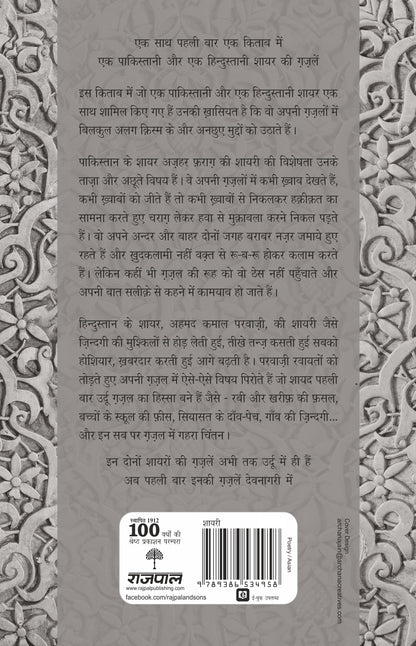 एक साथ पहली बार एक किताब में
एक पाकिस्तानी और एक हिन्दुस्तानी शायर की ग़ज़लें
इस किताब में जो एक पाकिस्तानी और एक हिन्दुस्तानी शायर एक
साथ शामिल किए गए हैं उनकी ख़ासियत है कि वो अपनी ग़ज़लों में
बिलकुल अलग क़िस्म के और अनछुए मुद्दों को उठाते हैं।
पाकिस्तान के शायर अज़हर फ़राग़ की शायरी की विशेषता उनके
ताज़ा और अछूते विषय हैं। वे अपनी ग़ज़लों में कभी ख़्वाब देखते हैं,
कभी ख़्वाबों को जीते हैं तो कभी ख़्वाबों से निकलकर हक़ीक़त का
सामना करते हुए चराग़ लेकर हवा से मुक़ाबला करने निकल पड़ते
हैं। वो अपने अन्दर और बाहर दोनों जगह बराबर नज़र जमाये हुए
रहते हैं और ख़ुदकलामी नहीं वक़्त से रू-ब-रू होकर कलाम करते
हैं। लेकिन कहीं भी ग़ज़ल की रूह को वो ठेस नहीं पहुँचाते और
अपनी बात सलीक़े से कहने में कामयाब हो जाते हैं।
हिन्दुस्तान के शायर, अहमद कमाल परवाज़ी, की शायरी जैसे
ज़िन्दगी की मुश्किलों से होड़ लेती हुई, तीखे तन्ज़ कसती हुई सबको
होशियार, ख़बरदार करती हुई आगे बढ़ती है। परवाज़ी रवायतों को
तोड़ते हुए अपनी ग़ज़ल में ऐसे-ऐसे विषय पिरोते हैं जो शायद पहली
बार उर्दू ग़ज़ल का हिस्सा बने हैं जैसे - रबी और खरीफ़ की फ़सल,
बच्चों के स्कूल की फ़ीस, सियासत के दाँव-पेच, गाँव की ज़िन्दगी...
और इन सब पर ग़ज़ल में गहरा चिंतन।
इन दोनों शायरों की ग़ज़लें अभी तक उर्दू में ही हैं
अब पहली बार इनकी ग़ज़लें देवनागरी में
स्थापित 1912
100 वर्षों की
श्रेष्ठ प्रकाशन परम्परा
राजपाल
www.rajpalpublishing.com
facebook.com/rajpalandsons
शायरी
Poetry / Asian
9 789386 534958
ई-बुक उपलब्ध
Cover Design
archanajain@archanacreatives.com